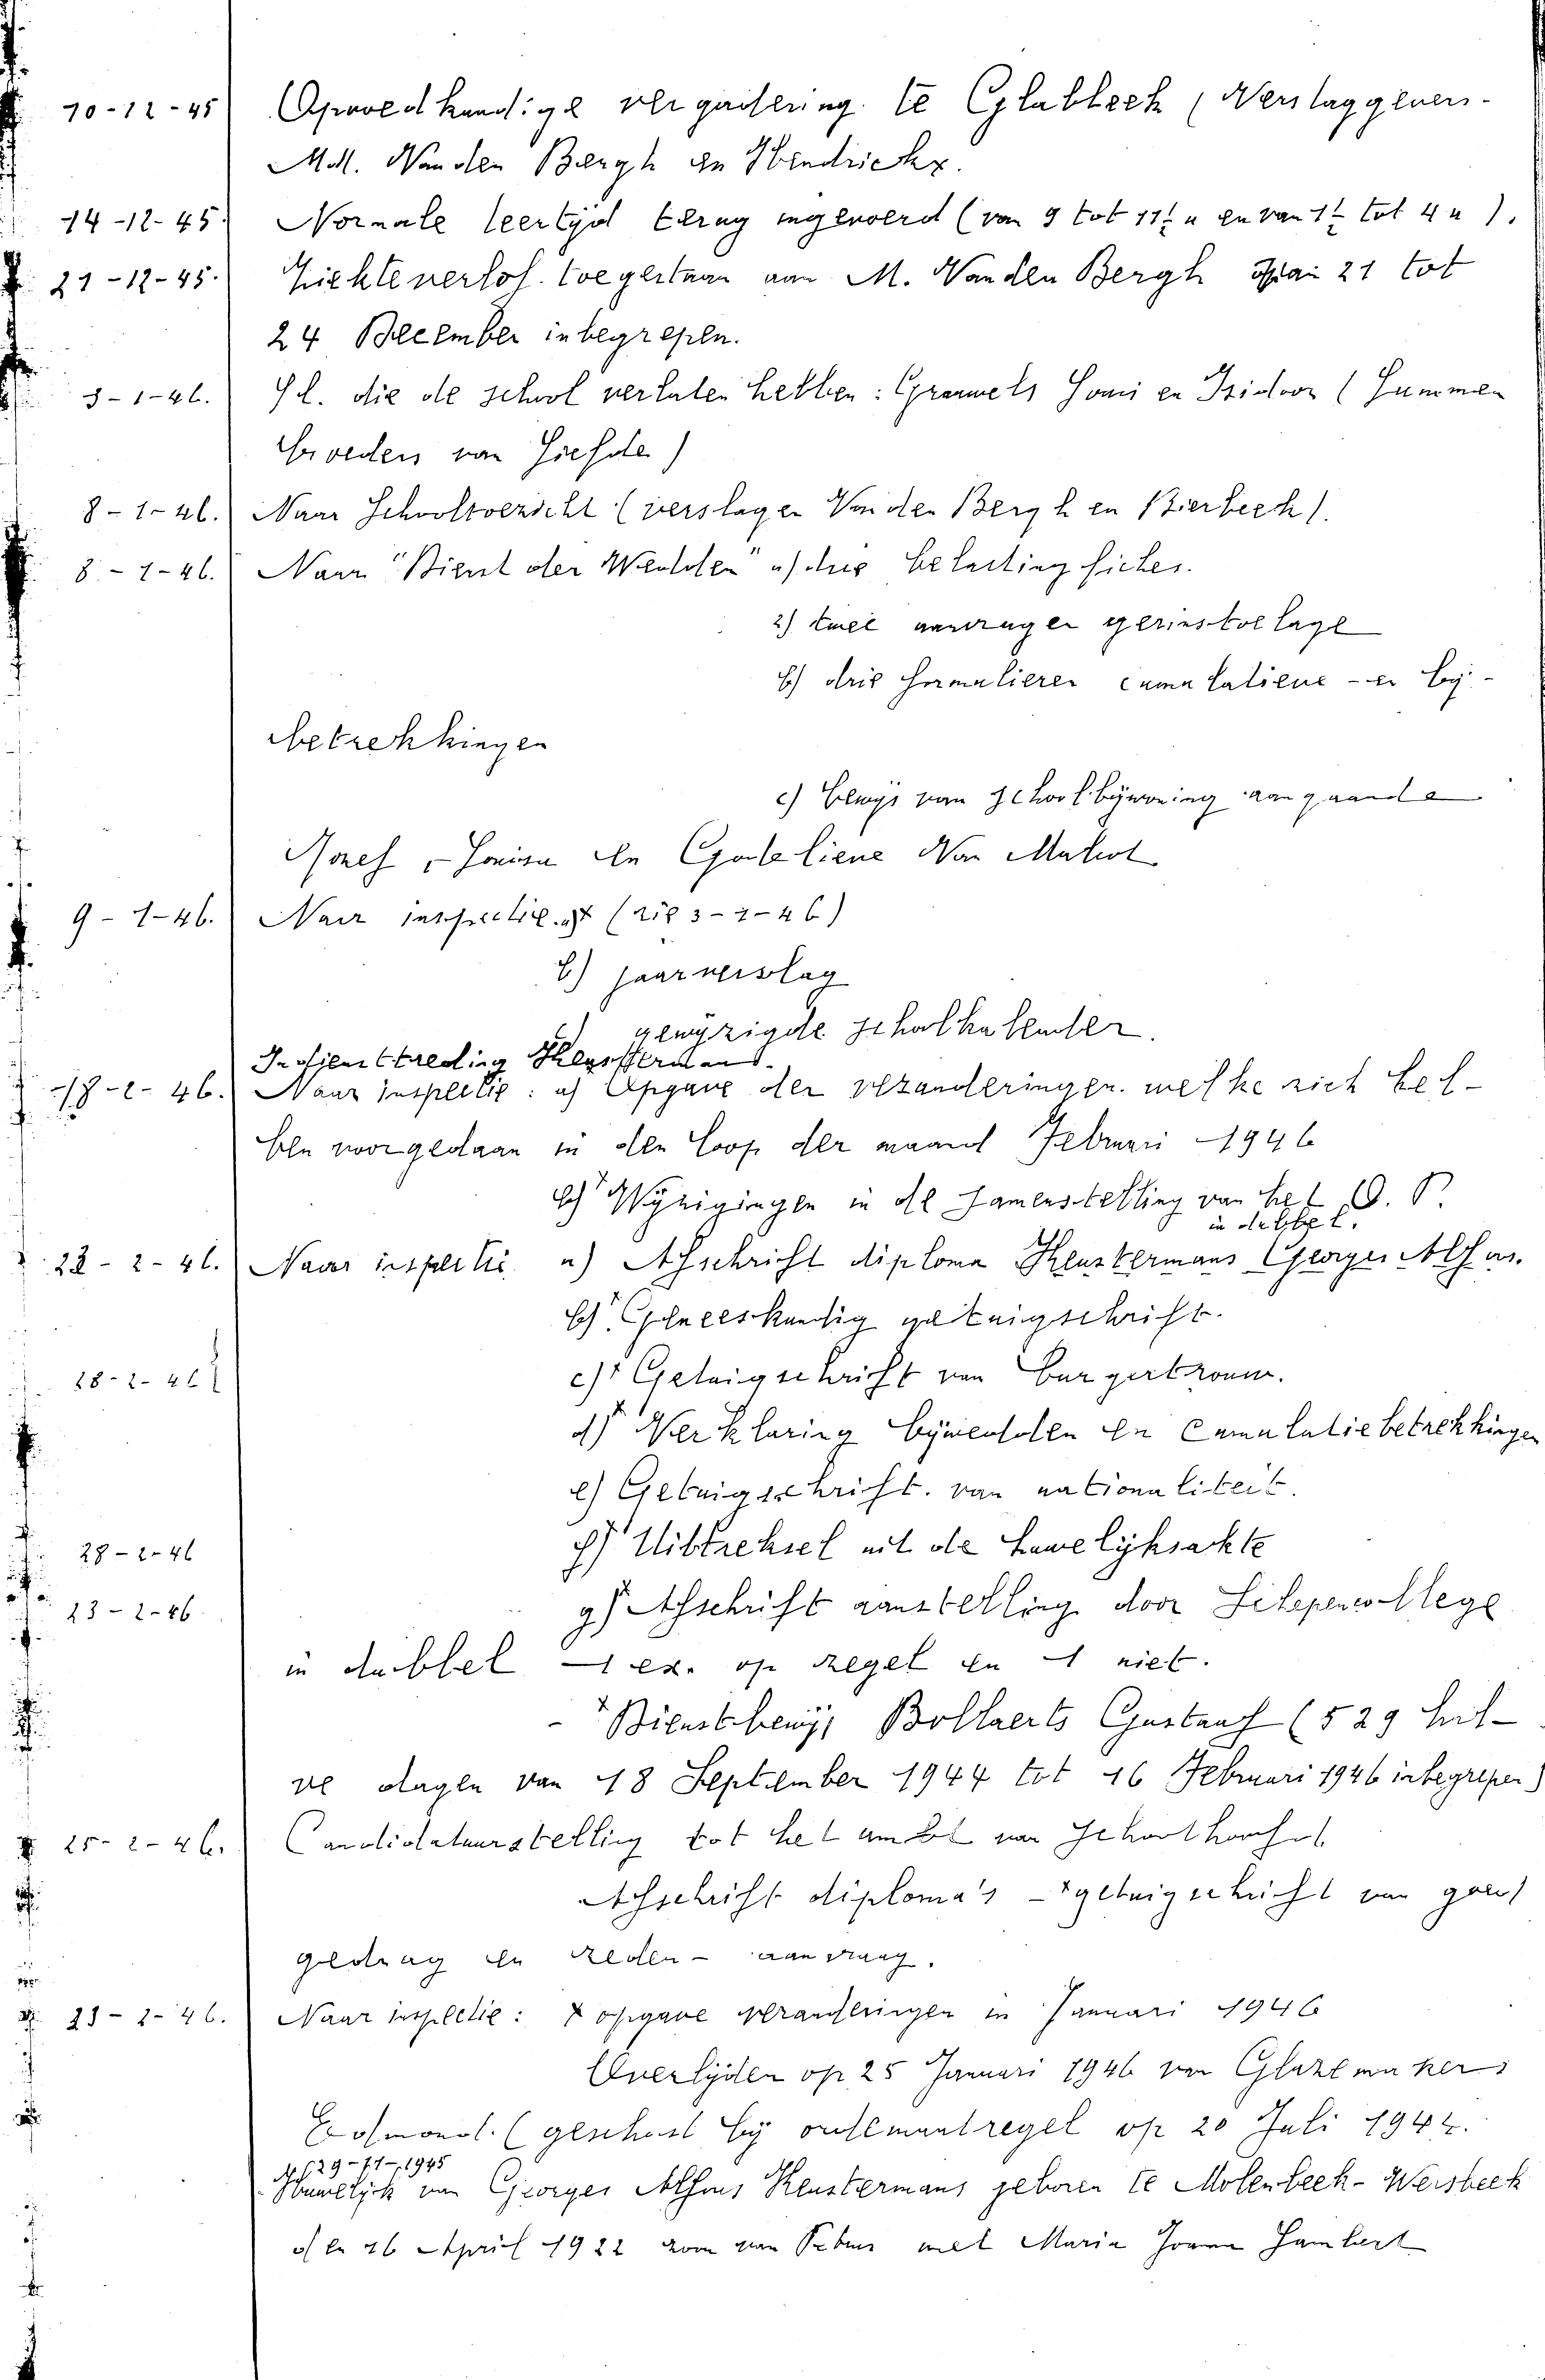 10-12-45 Opvoedkundige vergadering te Glabbeek (Verslaggevers-
MM. Van den Bergh en Hendrickx.
14-12-45. Normale leertyd terug ingevoerd (van 9 tot 11½ u en van 1½ tot 4 u).
21-12-45. Ziekteverlof toegestaan aan M. Van den Bergh van 21 tot
24 December inbegrepen.
3-1-46. Ll. die de school verlaten hebben: Grauwels Louis en Isidoor (
broeders van Liefde)
8-1-46. Naar Schooltoezicht (verslagen Van den Bergh en Bierbeek).
8-1-46. Naar "Dienst der Wedden" a) drie belastingfiches.
2) twee aanvragen gezinstoelage
b) drie formulieren cumulatieve- en by-
betrekkingen
c) bewys van schoolbywoning aangaande
Jozef, Louisa en Godelieve Van
9-1-46. Naar inspectie. a) (zie 3-1-46)
b) jaarverslag
c) gewyzigde schoolkalender.
Indiensttreding Keustermans.
18-2-46. Naar inspectie: a) Opgave der veranderingen welke zich heb-
ben voorgedaan in den loop der maand Februari 1946
b) Wyzigingen in de samenstelling van het O. P.
in dubbel.
22-2-46. Naar inspectie a) Afschrift diploma Keustermans Georges Alfons.
b) Geneeskundig getuigschrift.
28-2-46 c) Getuigschrift van burgertrouw.
d) Verklaring bywedden en cumulatiebetrekkingen
e) Getuigschrift van nationaliteit.
28-2-46 f) Uittreksel uit de huwelyksakte
23-2-46 g) Afschrift aanstelling door Schepencollege
in dubbel 1 ex. op zegel en 1 niet.
- Dienstbewys Bollaerts Gustaaf (529 hal-
ve dagen van 18 September 1944 tot 16 Februari 1946 inbegrepen)
25-2-46. Candidatuurstelling tot het ambt van Schoolhoofd
Afschrift diploma's - getuigschrift van goed
gedrag en zeden - aanvraag.
23-2-46. Naar inspectie: opgave veranderingen in Januari 1946
Overlyden op 25 Januari 1946 van Glazemakers
Edmond. (geschorst by ordemaatregel op 20 Juli 1944.
op 29-11-1945
Huwelyk van Georges Alfons Keustermans geboren te Molenbeek-Wersbeek
den 16 April 1922 zoon van met Maria Lambert